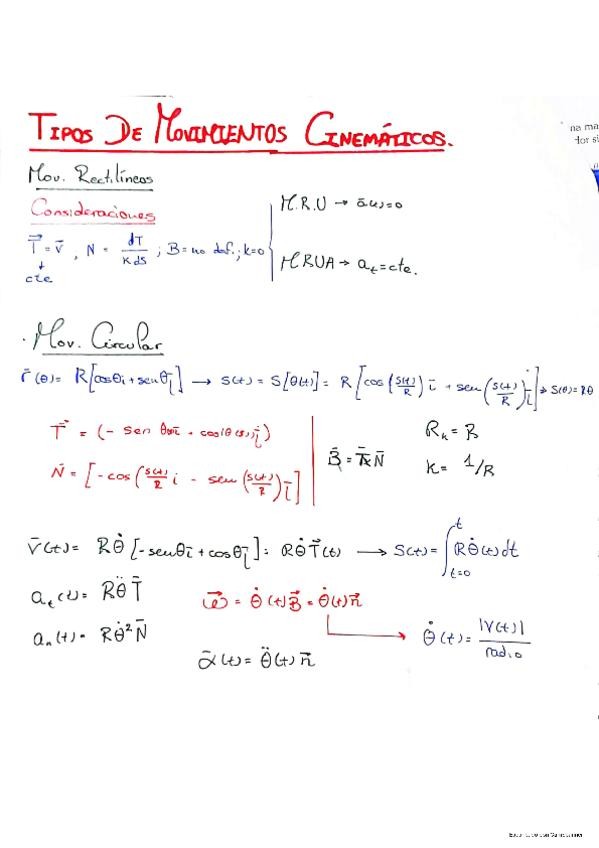 TIPOS DE MOVIMIENTOS CINEMÁTICOS.
na ma
Mov. Rectilíneos
Consideraciones
M.R.U → ā(t)=0
T⃗ = v̄ , N = dT/kds ; B = no def.; k=0
cte
MRUA → a_t = cte.
· Mov. Circular
r̄(θ) = R[cosθi + senθj] → S(t) = S[θ(t)] = R[cos(S(t)/R) i + sen(S(t)/R) j] → S(θ) = Rθ
N̄ = [-cos(S(t)/R) i - sen(S(t)/R) j]
k = 1/R
v̄(t) = Rθ̇[-senθi + cosθj] = Rθ̇T̄(t) → S(t) = ∫_{t=0}^{t} Rθ̇(t)dt
a_t(t) = Rθ̈T̄
ω⃗ = θ̇(t)B̄ = θ̇(t)n̄
a_n(t) = Rθ̇²N̄
θ̇(t) = |V(t)|/radio
ᾱ(t) = θ̈(t)n̄